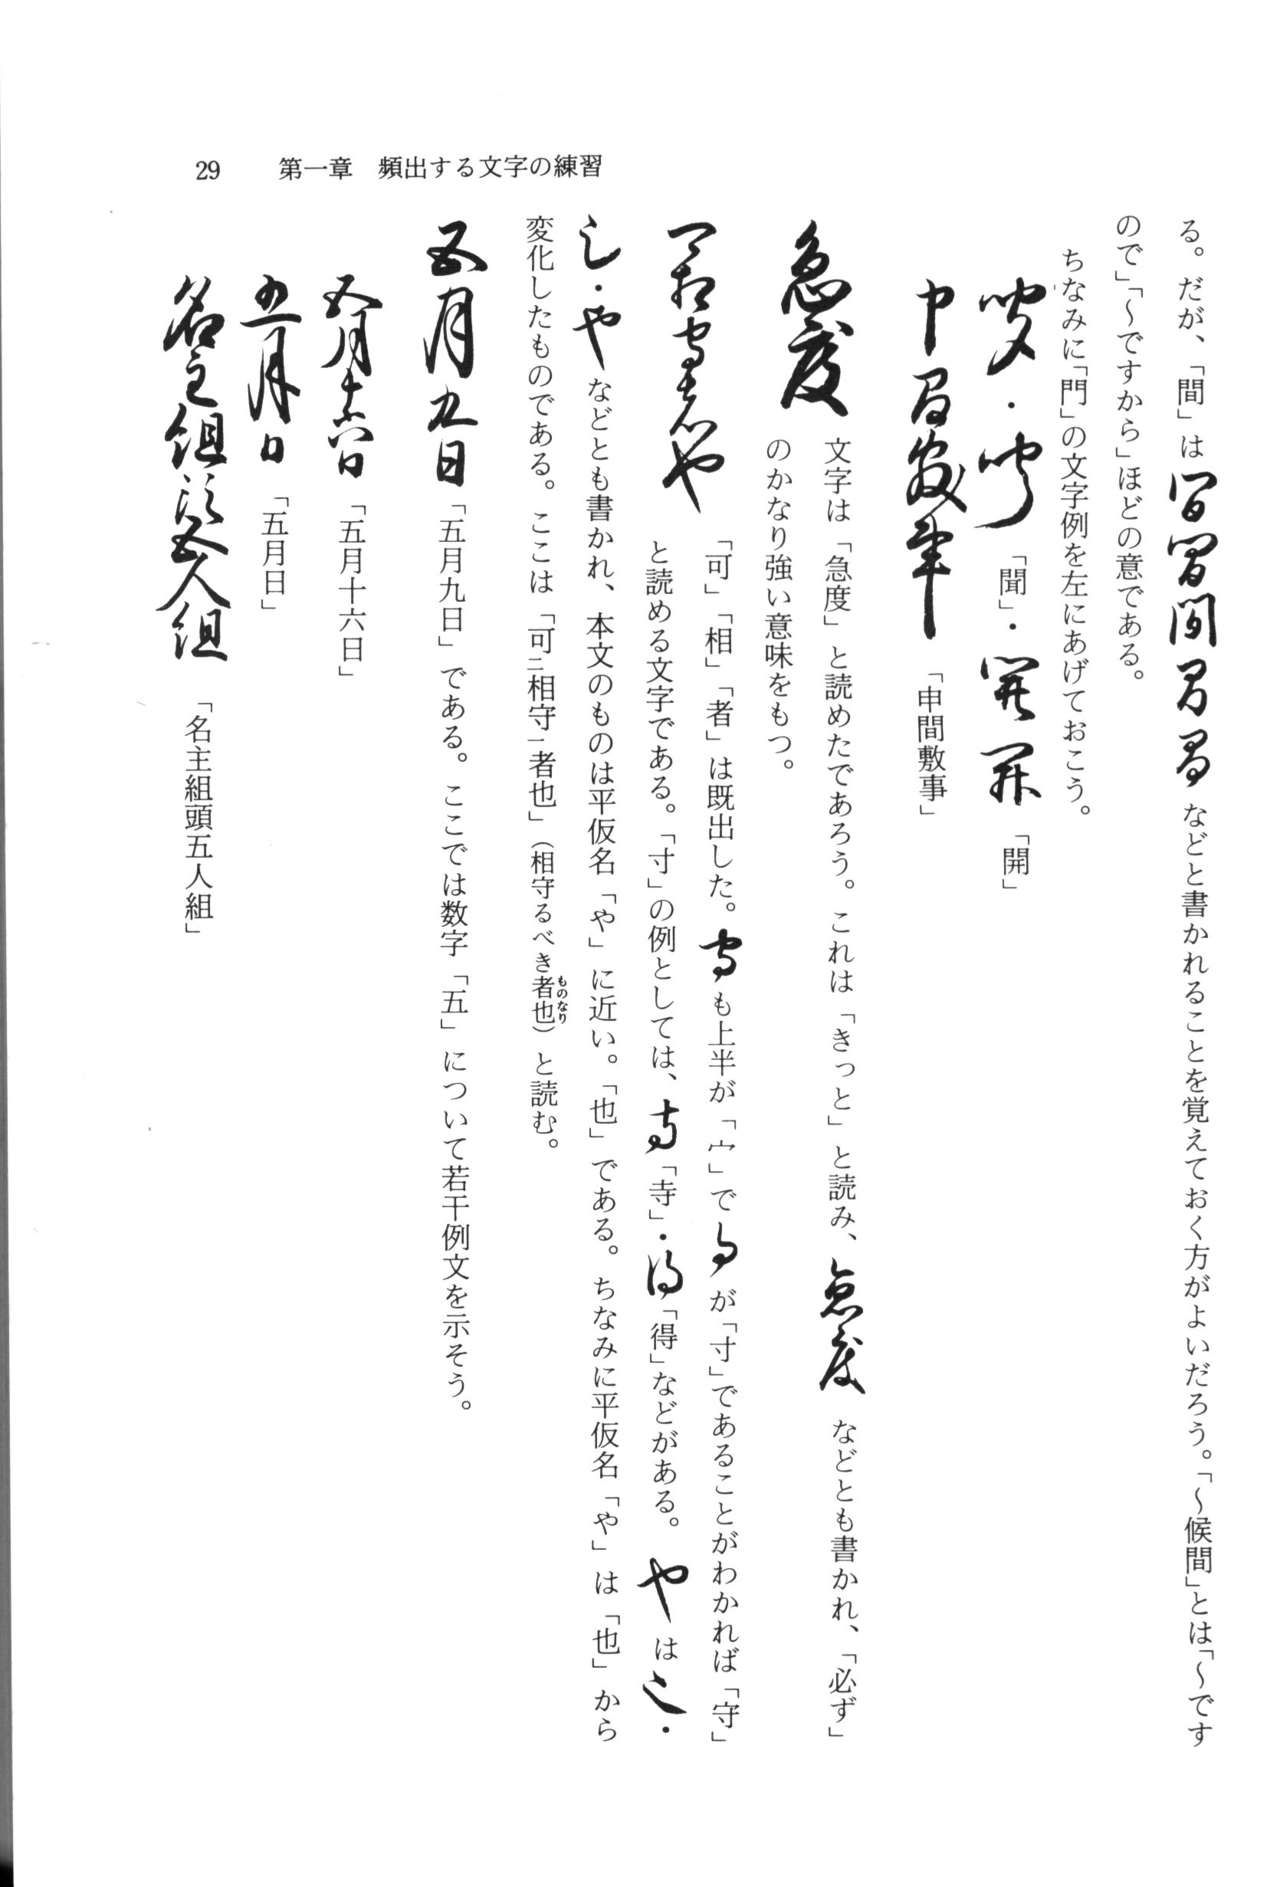 29　第一章　頻出する文字の練習
る。だが、「間」は間間間間間などと書かれることを覚えておく方がよいだろう。「〜候間」とは「〜です
ので」「〜ですから」ほどの意である。
ちなみに「門」の文字例を左にあげておこう。
聞・聞「聞」・開開「開」
申間敷事「申間敷事」
急度　文字は「急度」と読めたであろう。これは「きっと」と読み、急度などとも書かれ、「必ず」
のかなり強い意味をもつ。
可相守者也　「可」「相」「者」は既出した。守も上半が「宀」で寸が「寸」であることがわかれば「守」
と読める文字である。「寸」の例としては、寺「寺」・得「得」などがある。やは也・
也・やなどとも書かれ、本文のものは平仮名「や」に近い。「也」である。ちなみに平仮名「や」は「也」から
変化したものである。ここは「可二相守一者也」（相守るべき者也ものなり）と読む。
五月九日「五月九日」である。ここでは数字「五」について若干例文を示そう。
五月十六日「五月十六日」
五月日「五月日」
名主組頭五人組「名主組頭五人組」